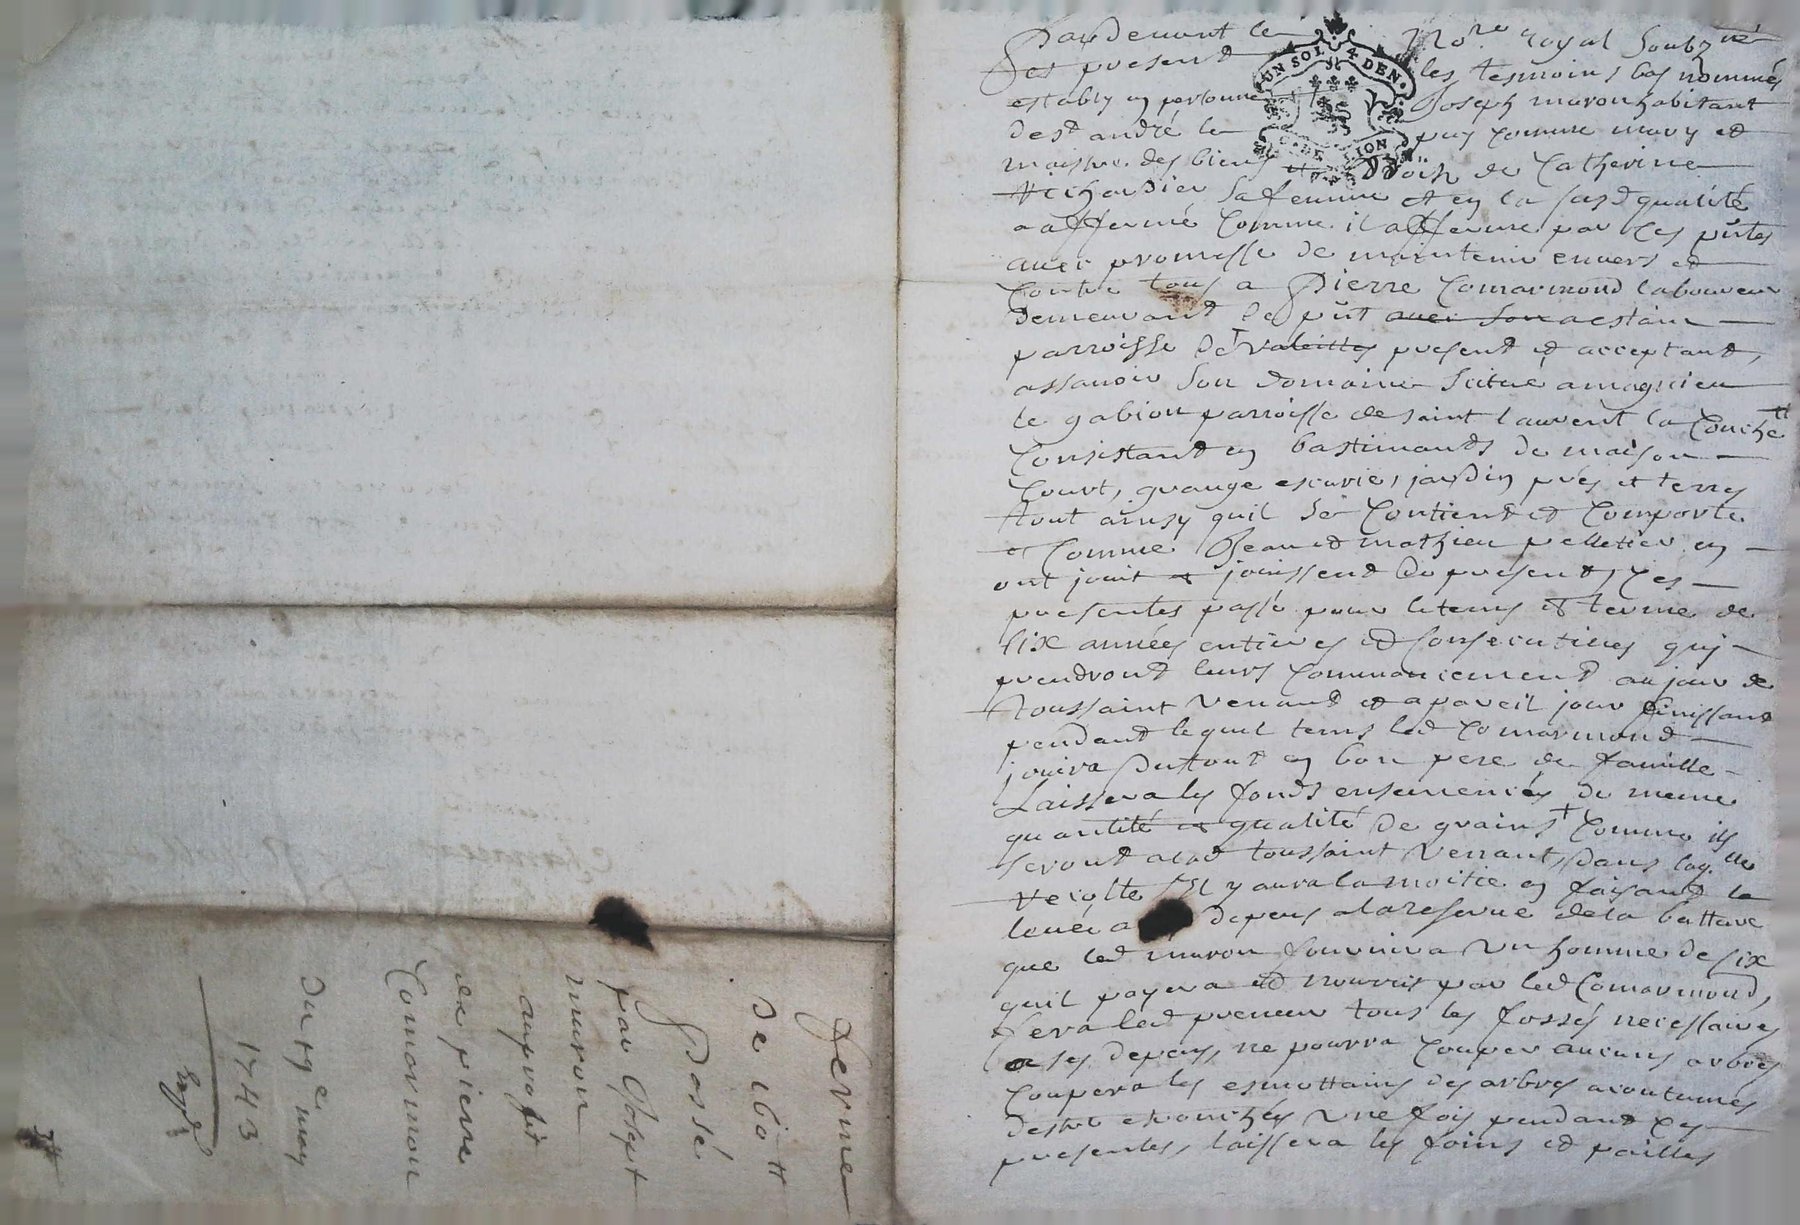 Pardevant le No.re royal Soubz.né
et present les tesmoins bas nommés
estably en personne Joseph muron habitant
de st andré le puy comme mary et
maistre des biens et droits de Catherine
Richardier sa femme et en la susd qualité
a affermé comme il afferme par ces pntes
avec promesse de maintenir envers et
contre tous a Pierre Comarmond laboureur
demeurant de pnt avec son a estain
parroisse de valeilles present et acceptant,
assavoir son domaine scitué a magnieu
le gabion parroisse de saint laurent la Conche
Consistant en bastimands de maison
Court, grange escurie, jardin prés et terres
tout ainsy quil se Contient et Comporte
et Comme Jean et mathieu pelletier en
ont jouit et jouissent de present, Ces
presentes passé pour le tems et terme de
six années entieres et Consecutives qui
prendront leurs Commancement au jour de
toussaint venant et a pareil jour finissant
pendant lequel tems led Comarmond
jouira du tout en bon pere de famille
Laissera les fonds ensemencés de meme
quantité et qualité de grains Comme ils
seront alad toussaint venant, dans laq.lle
recolte Il y aura la moitié en faisant la
levée a depens a la reserve de la batture
que led muron fournira un homme de six
quil payera et nourris par led Comarmond,
fera led preneur tous les fossés necessaires
a ses depens, ne pourra Couper aucuns arbres
Coupera les esmottains des arbres acoutumés
destre ebranchés une fois pendant ces
presentes, laissera les foins et pailles
ferme
de 160 tt
Passé
par Joseph
muron
au profit
de pierre
Comarmon
du 19e may
1743